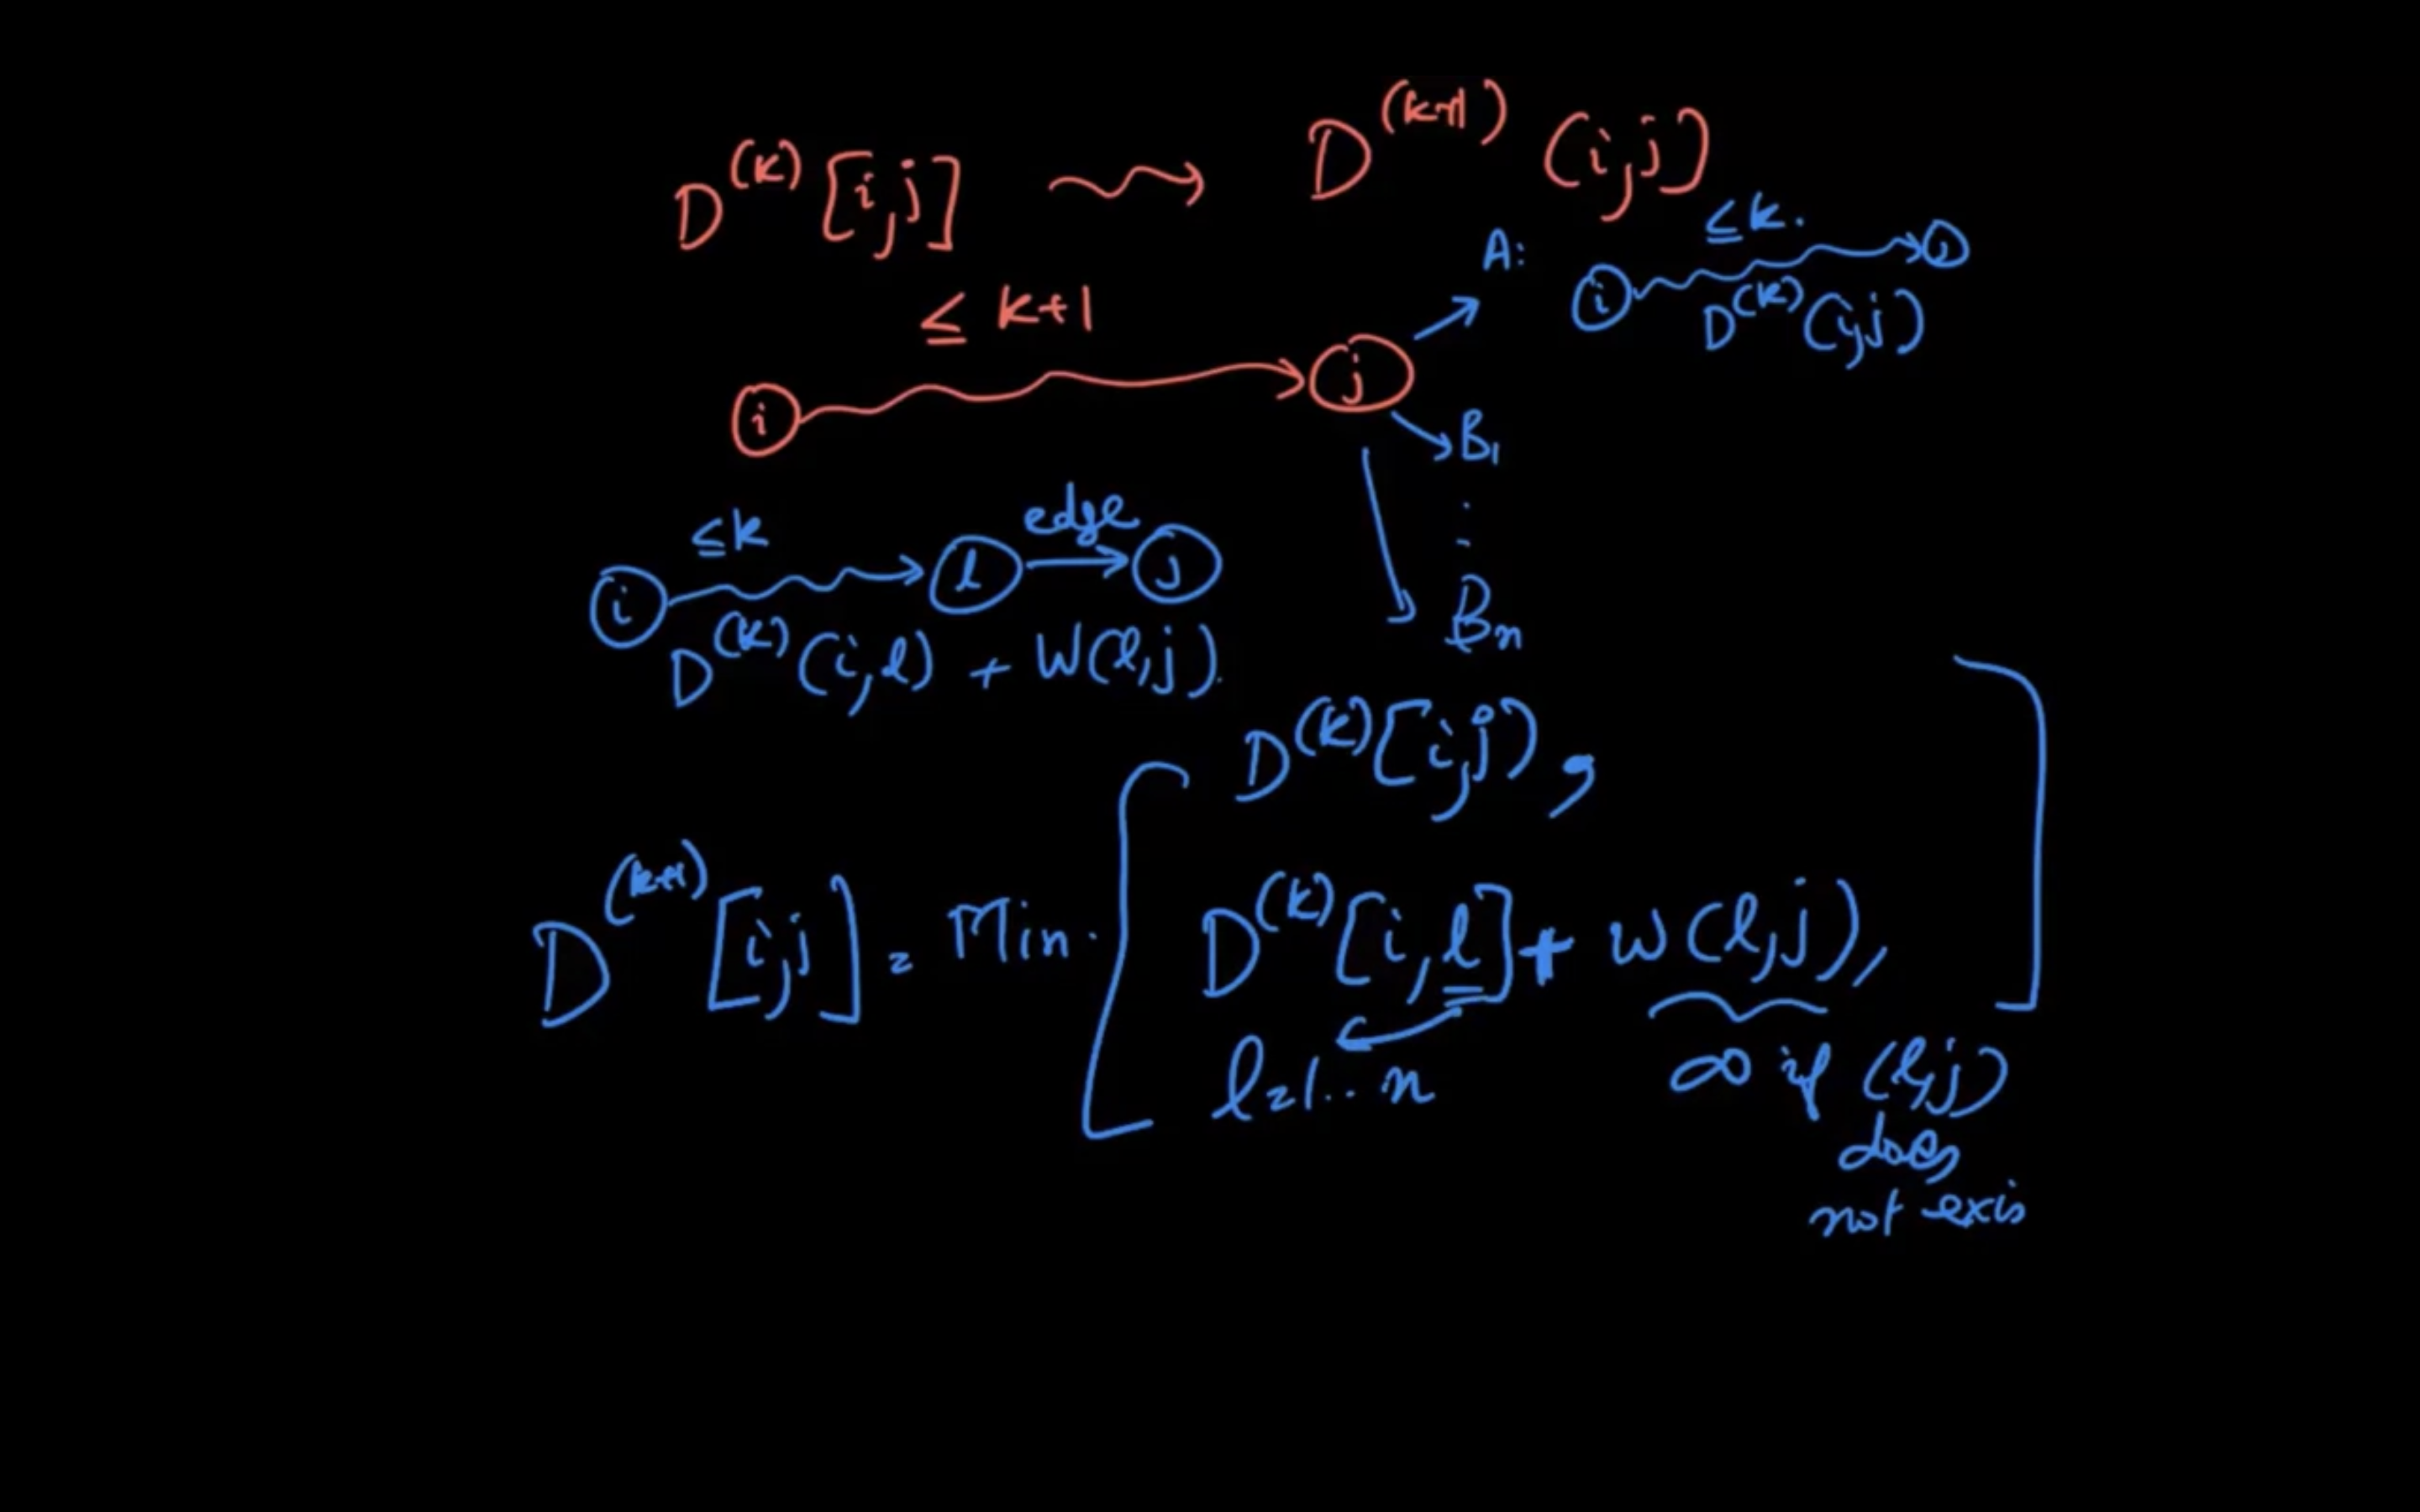 D^(k) [i,j] ⇝ D^(k+1) (i,j)
A: ≤ k.
i j
D^(k) (i,j)
≤ k+1
i j
B₁
:
Bₙ
≤k edge
i l j
D^(k) (i,l) + W(l,j).
D^(k+1) [i,j] = Min. [ D^(k) [i,j),
D^(k) [i,l] + W(l,j), ]
l=1..n
∞ if (l,j)
does
not exis